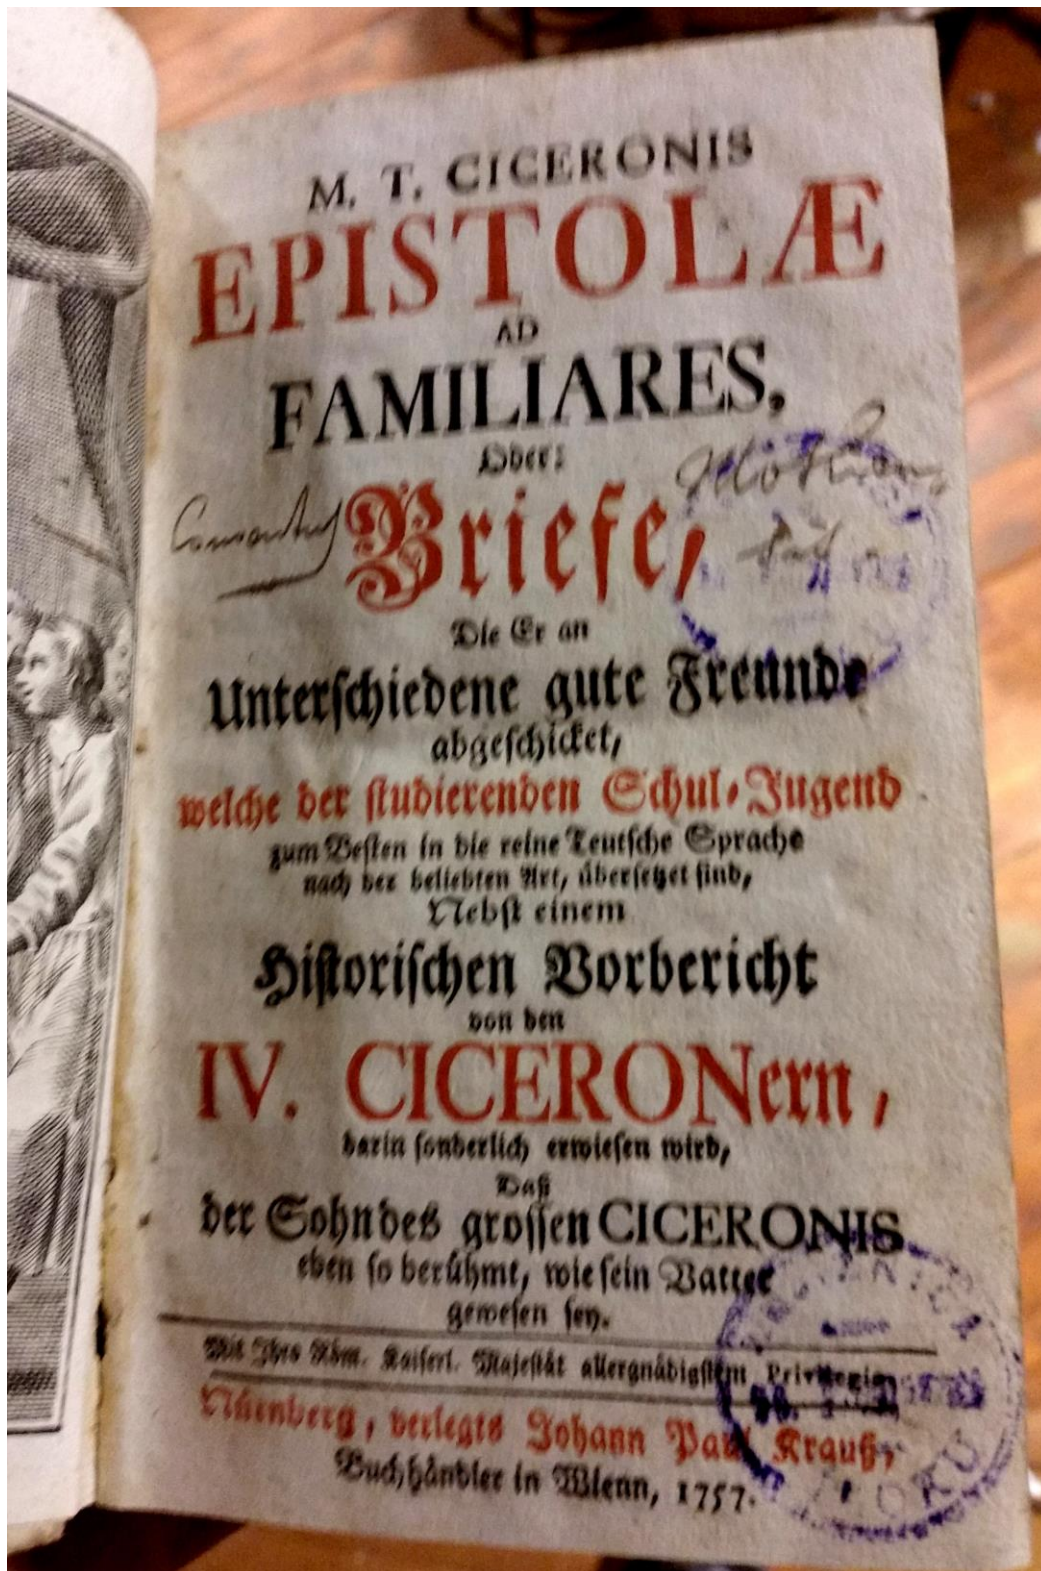 M. T. CICERONIS
EPISTOLÆ
AD
FAMILIARES,
Oder:
Briefe,
Die Er an
Unterſchiedene gute Freunde
abgeſchicket,
welche der ſtudierenden Schul-Jugend
zum Beſten in die reine Teutſche Sprache
nach der beliebten Art, überſetzet ſind,
Nebſt einem
Hiſtoriſchen Vorbericht
von den
IV. CICERONern,
darin ſonderlich erwieſen wird,
Daß
der Sohn des groſſen CICERONIS
eben ſo berühmt, wie ſein Vatter
geweſen ſey.
Mit Ihro Röm. Kaiſerl. Majeſtät allergnädigſtem Privilegio.
Nürnberg, verlegts Johann Paul Krauß,
Buchhändler in Wienn, 1757.